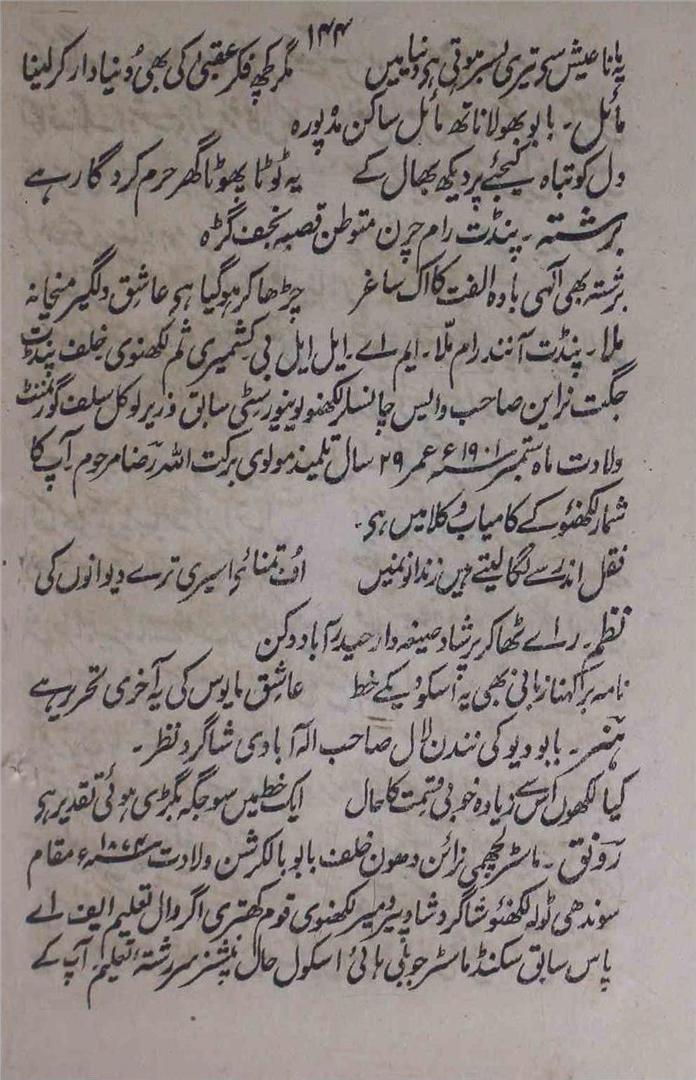 ۱۴۴
یہ مانا عیش سے تیری بسر ہوتی ہے دنیا میں مگر کچھ فکر عقبیٰ کی بھی دُنیا دار کر لینا
مائل۔ بابو بھولا ناتھ مائل ساکن مدپورہ
دل کو تباہ کیجئے پر دیکھ بھال کے یہ ٹوٹا پھوٹا گھر حرم کردگار ہے
برشتہ۔ پنڈت رام چرن متوطن قصبہ نجف گڑہ
برشتہ بھی آلہی بادہ الفت کا اک ساغر چڑھا کر ہوگیا ہے عاشق دلگیر میخانہ
ملا۔ پنڈت آنند رام ملّا۔ ایم اے۔ ایل ایل بی کشمیری ثم لکھنوی خلف پنڈت
جگت نراین صاحب وایس چانسلر لکھنو یونیورسٹی سابق وزیر لوکل سلف گورنمنٹ
ولادت ماہ ستمبر سنہ ۱۹۰۱ء عمر ۲۹ سال تلمیذ مولوی برکت اللہ رضا مرحوم۔ آپ کا
شمار لکھنؤ کے کامیاب وُکلا میں ہے۔
قفل اندر سے لگا لیتے ہیں زندانوں میں اُف تمنائے اسیری ترے دیوانوں کی
نظم۔ رائے ٹھاکر پرشاد صیغہ دار حیدر آباد دکن
نامہ بر کہنا زبانی بھی یہ اسکو دیکے خط عاشق مایوس کی یہ آخری تحریر ہے
ہنر۔ بابو دیوکی نندن لال صاحب الہ آبادی شاگرد نظر۔
کیا لکھوں اس سے زیادہ خوبی قسمت کا حال ایک خط میں سو جگہ بگڑی ہوئی تقدیر ہے
رونق۔ ماسٹر لچھمی نرائن دھون خلف بابو بالکرشن ولادت سنہ ۱۸۷۴ء مقام
سوندھی ٹولہ لکھنؤ شاگرد شاد پیر و میر لکھنوی قوم کھتری اگروال تعلیم ایف اے
پاس سابق سکنڈ ماسٹر جوبلی ہائی اسکول حال پنشنر سررشتہ تعلیم آپ کے